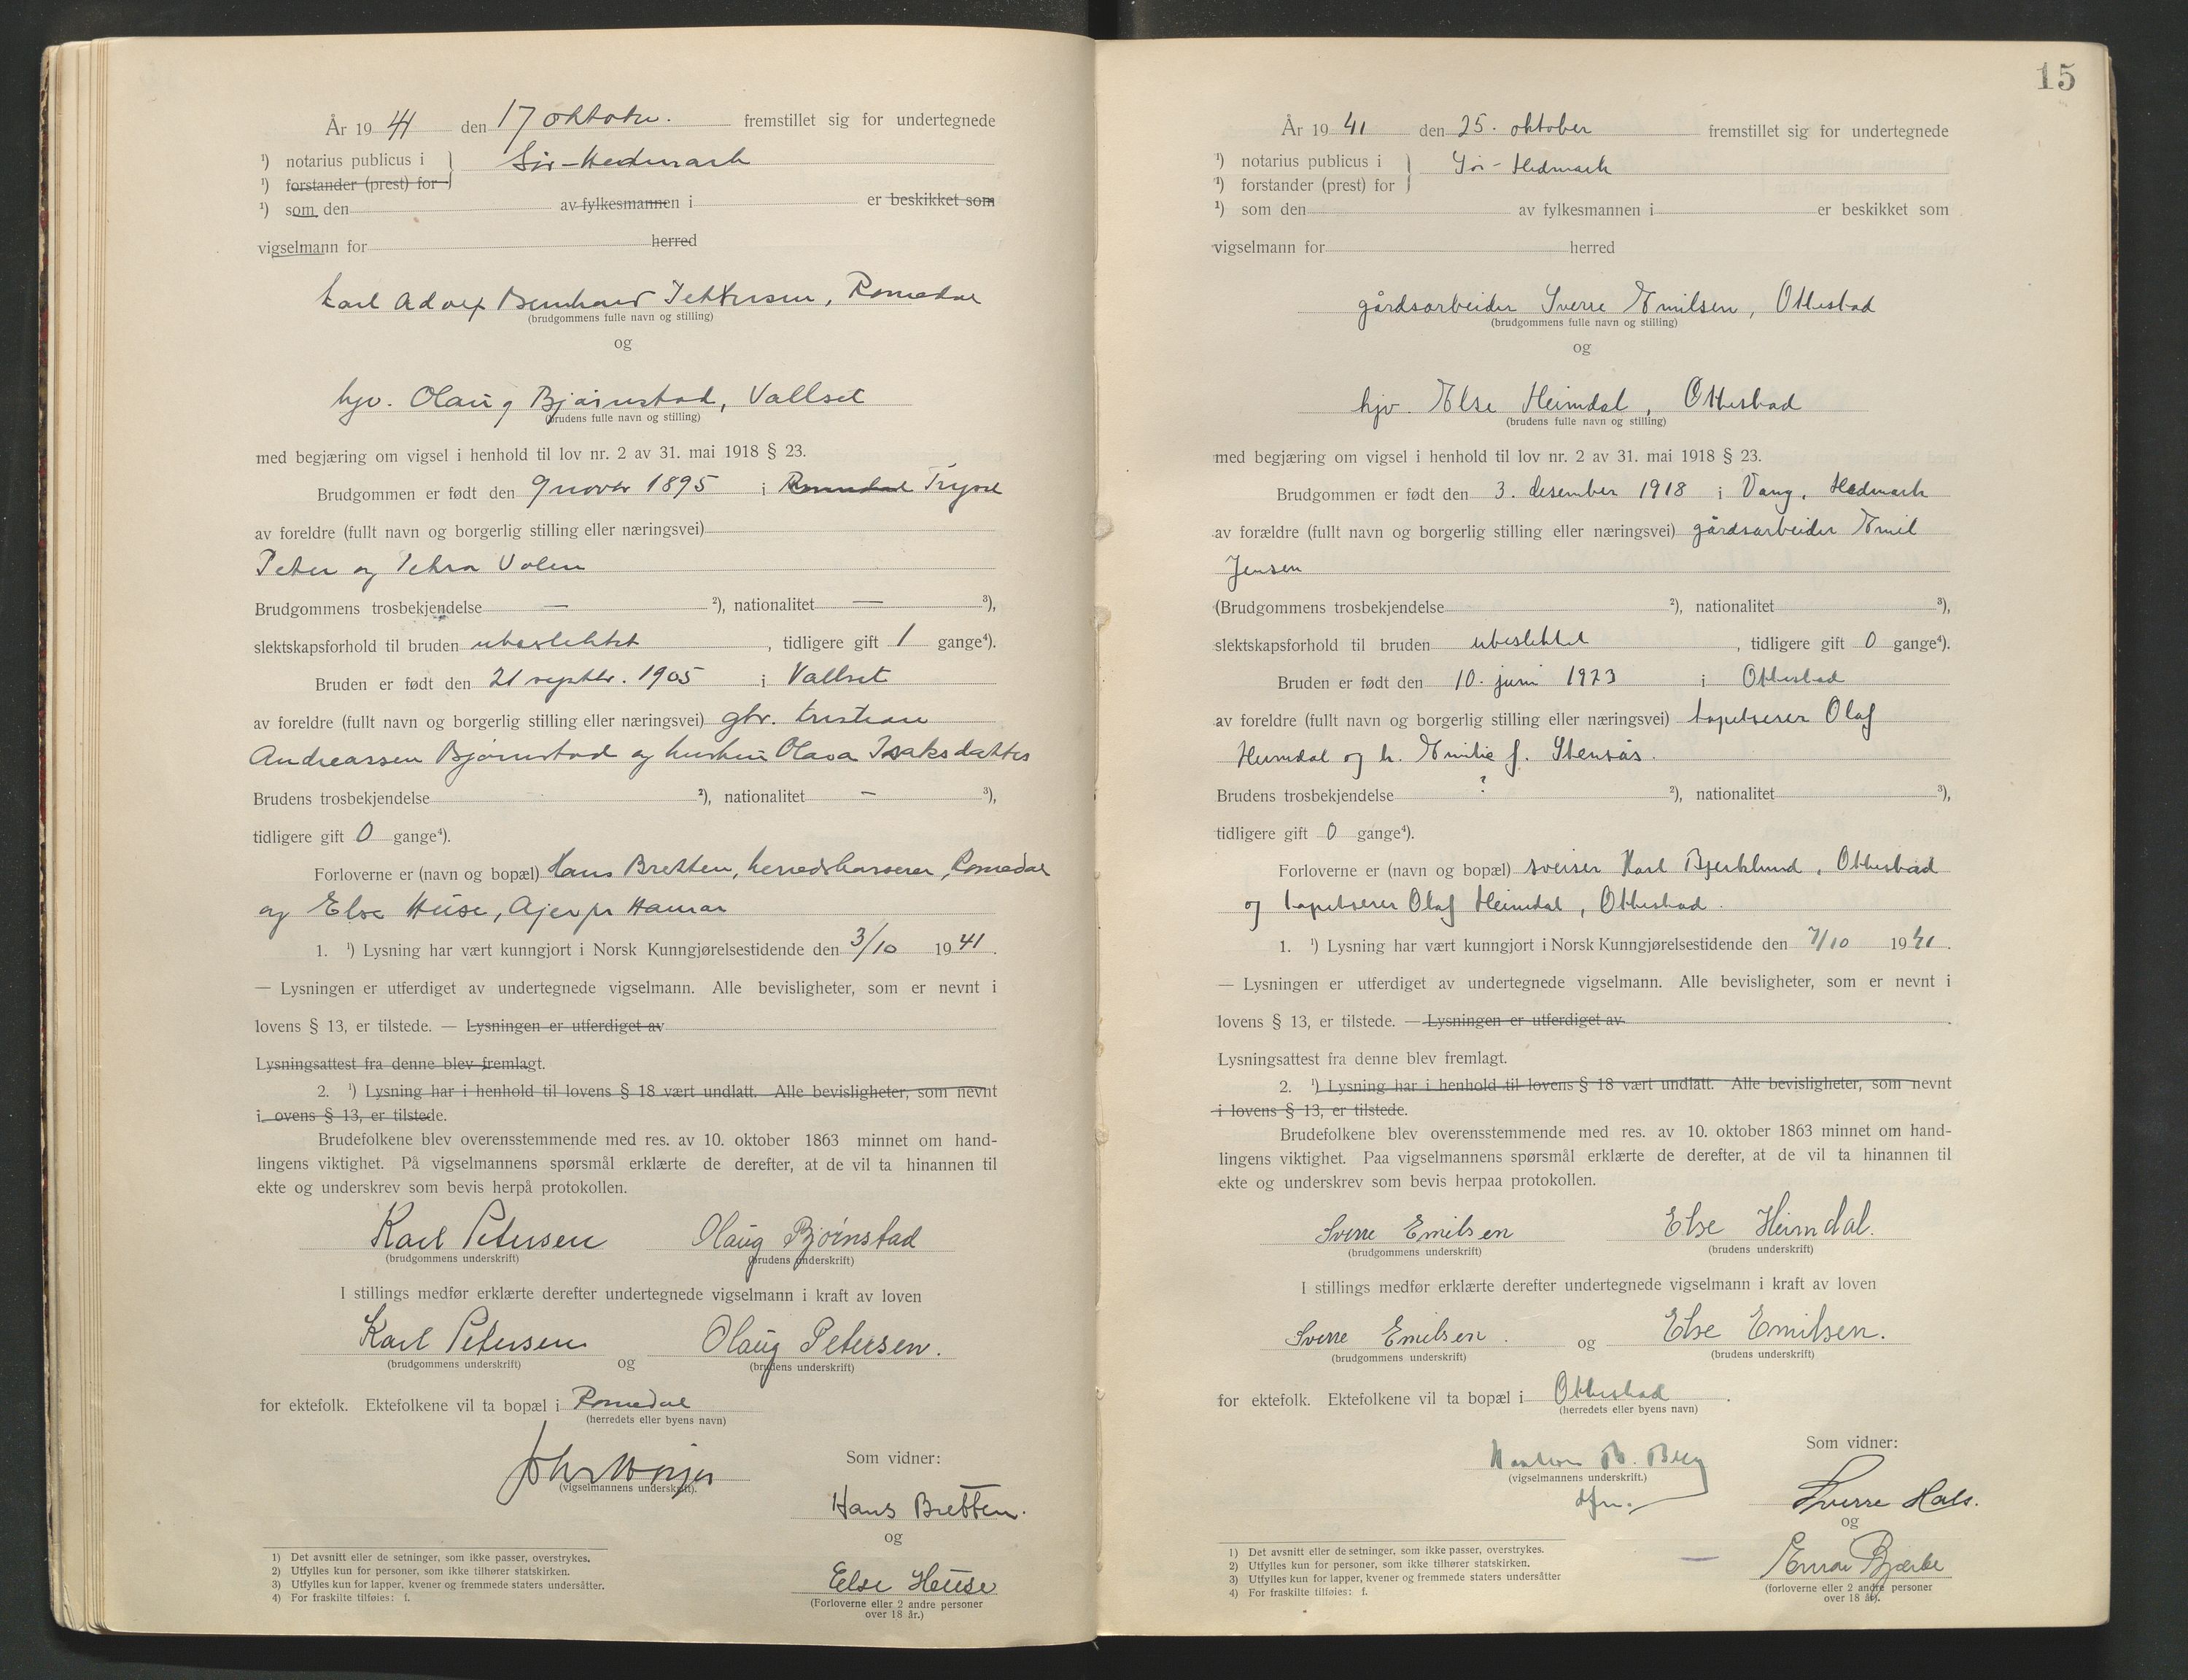 År 1941 den 17 oktober. fremstillet sig for undertegnede
¹) notarius publicus i } Sør-Hedmark
¹) forstander (prest) for
¹) som den av fylkesmannen i er beskikket som
vigselmann for herred
Karl Adolf Bernhard Pettersen, Romedal
(brudgommens fulle navn og stilling)
og
hjv. Olaug Bjørnstad, Vallset
(brudens fulle navn og stilling)
med begjæring om vigsel i henhold til lov nr. 2 av 31. mai 1918 § 23.
Brudgommen er født den 9 novbr 1895 i Romedal Trysil
av foreldre (fullt navn og borgerlig stilling eller næringsvei)
Peter og Petra Volen
Brudgommens trosbekjendelse — ²), nationalitet — ³),
slektskapsforhold til bruden ubeslektet, tidligere gift 1 gange⁴).
Bruden er født den 21 septbr. 1905 i Vallset
av foreldre (fullt navn og borgerlig stilling eller næringsvei) gbr. Kristian
Andreassen Bjørnstad og hustru Olava Isaksdatter
Brudens trosbekjendelse ²), nationalitet — ³),
tidligere gift 0 gange⁴).
Forloverne er (navn og bopæl) Hans Bretten, herredskasserer, Romedal
og Else Huse, Ajer pr Hamar
1. ¹) Lysning har vært kunngjort i Norsk Kunngjørelsestidende den 3/10 1941.
— Lysningen er utferdiget av undertegnede vigselmann. Alle bevisligheter, som er nevnt i
lovens § 13, er tilstede. — Lysningen er utferdiget av
Lysningsattest fra denne blev fremlagt.
2. ¹) Lysning har i henhold til lovens § 18 vært undlatt. Alle bevisligheter, som nevnt
i ovens § 13, er tilstede.
Brudefolkene blev overensstemmende med res. av 10. oktober 1863 minnet om hand-
lingens viktighet. På vigselmannens spørsmål erklærte de derefter, at de vil ta hinannen til
ekte og underskrev som bevis herpå protokollen.
Karl Petersen Olaug Bjørnstad
(brudgommens underskrift) (brudens underskrift)
I stillings medfør erklærte derefter undertegnede vigselmann i kraft av loven
Karl Petersen og Olaug Petersen.
(brudgommens underskrift) (brudens underskrift)
for ektefolk. Ektefolkene vil ta bopæl i Romedal
(herredets eller byens navn)
Som vidner:
(vigselmannens underskrift).
Hans Bretten.
og
Else Huse
(Forloverne eller 2 andre personer
over 18 år.)
1) Det avsnitt eller de setninger, som ikke passer, overstrykes.
2) Utfylles kun for personer, som ikke tilhører statskirken.
3) Utfylles kun for lapper, kvener og fremmede staters undersåtter.
4) For fraskilte tilføies: f.
15
År 1941 den 25. oktober fremstillet sig for undertegnede
¹) notarius publicus i } Sør-Hedmark
¹) forstander (prest) for
¹) som den av fylkesmannen i er beskikket som
vigselmann for herred
gårdsarbeider Sverre Emilsen, Ottestad
(brudgommens fulle navn og stilling)
og
hjv. Else Heimdal, Ottestad
(brudens fulle navn og stilling)
med begjæring om vigsel i henhold til lov nr. 2 av 31. mai 1918 § 23.
Brudgommen er født den 3. desember 1918 i Vang, Hedmark
av forældre (fullt navn og borgerlig stilling eller næringsvei) gårdsarbeider Emil
Jensen
(Brudgommens trosbekjendelse ²), nationalitet ³),
slektskapsforhold til bruden ubeslektet, tidligere gift 0 gange⁴).
Bruden er født den 10. juni 1923 i Ottestad
av foreldre (fullt navn og borgerlig stilling eller næringsvei) tapetserer Olaf
Heimdal og h. Emilie f. Stensås.
Brudens trosbekjendelse ? ²), nationalitet ³),
tidligere gift 0 gange⁴).
Forloverne er (navn og bopæl) sveiser Karl Bjerklund, Ottestad
og tapetserer Olaf Heimdal, Ottestad.
1. ¹) Lysning har vært kunngjort i Norsk Kunngjørelsestidende den 7/10 1941.
— Lysningen er utferdiget av undertegnede vigselmann. Alle bevisligheter, som er nevnt i
lovens § 13, er tilstede. — Lysningen er utferdiget av
Lysningsattest fra denne blev fremlagt.
2. ¹) Lysning har i henhold til lovens § 18 vært undlatt. Alle bevisligheter, som nevnt
i lovens § 13, er tilstede.
Brudefolkene blev overensstemmende med res. av 10. oktober 1863 minnet om hand-
lingens viktighet. Paa vigselmannens spørsmål erklærte de derefter, at de vil ta hinannen til
ekte og underskrev som bevis herpaa protokollen.
Sverre Emilsen Else Heimdal.
(brudgommens underskrift) (brudens underskrift)
I stillings medfør erklærte derefter undertegnede vigselmann i kraft av loven
Sverre Emilsen. og Else Emilsen.
(brudgommens underskrift) (brudens underskrift)
for ektefolk. Ektefolkene vil ta bopæl i Ottestad.
(herredets eller byens navn)
Som vidner:
(vigselmannens underskrift.)
Sverre Hals.
og
(forloverne eller 2 andre personer
over 18 år).
1) Det avsnitt eller de setninger, som ikke passer, overstrykes.
2) Utfylles kun for personer, som ikke tilhører statskirken.
3) Utfylles kun for lapper, kvener og fremmede staters undersåtter
4) For fraskilte tilføies: f.